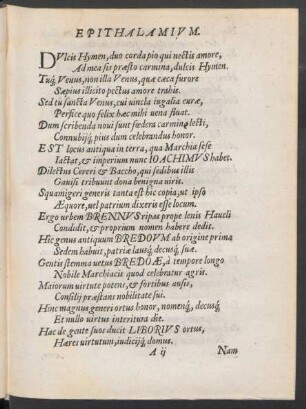 EPITHALAMIVM.
DVlcis Hymen, duo corda pio qui nectis amore,
Ad mea sis præsto carmina, dulcis Hymen.
Tuq́; Venus, non illa Venus, quæ cæca furore
Sæpius illicito pectus amore trahis.
Sed tu sancta Venus, cui uincla iugalia curæ,
Perfice quo felix hæc mihi uena fluat.
Dum scribenda noui sunt fœdera carmine lecti,
Connubijq́; pius dum celebrandus honor.
EST locus antiqua in terra, qua Marchia sese
Iactat, & imperium nunc IOACHIMVS habet.
Dilectus Cereri & Baccho, qui sedibus illis
Gauisi tribuunt dona benigna uiris.
Squamigeri generis tanta est hic copia, ut ipso
Æquore, uel patrium dixeris esse locum.
Ergo urbem BRENNVS ripas prope lenis Haueli
Condidit, & proprium nomen habere dedit.
Hic genus antiquum BREDOVM ab origine prima
Sedem habuit, patriæ lausq́; decusq́; suæ.
Gentis stemma uetus BREDOÆ, à tempore longo
Nobile Marchiacis quod celebratur agris.
Maiorum uirtute potens, & fortibus ausis,
Consilij præstans nobilitate sui.
Hinc magnus generi ortus honor, nomenq́; decusq́;
Et nullo uirtus interitura die.
Hac de gente suos ducit LIBORIVS ortus,
Hæres uirtutum, iudicijq́; domus.
A ij Nam